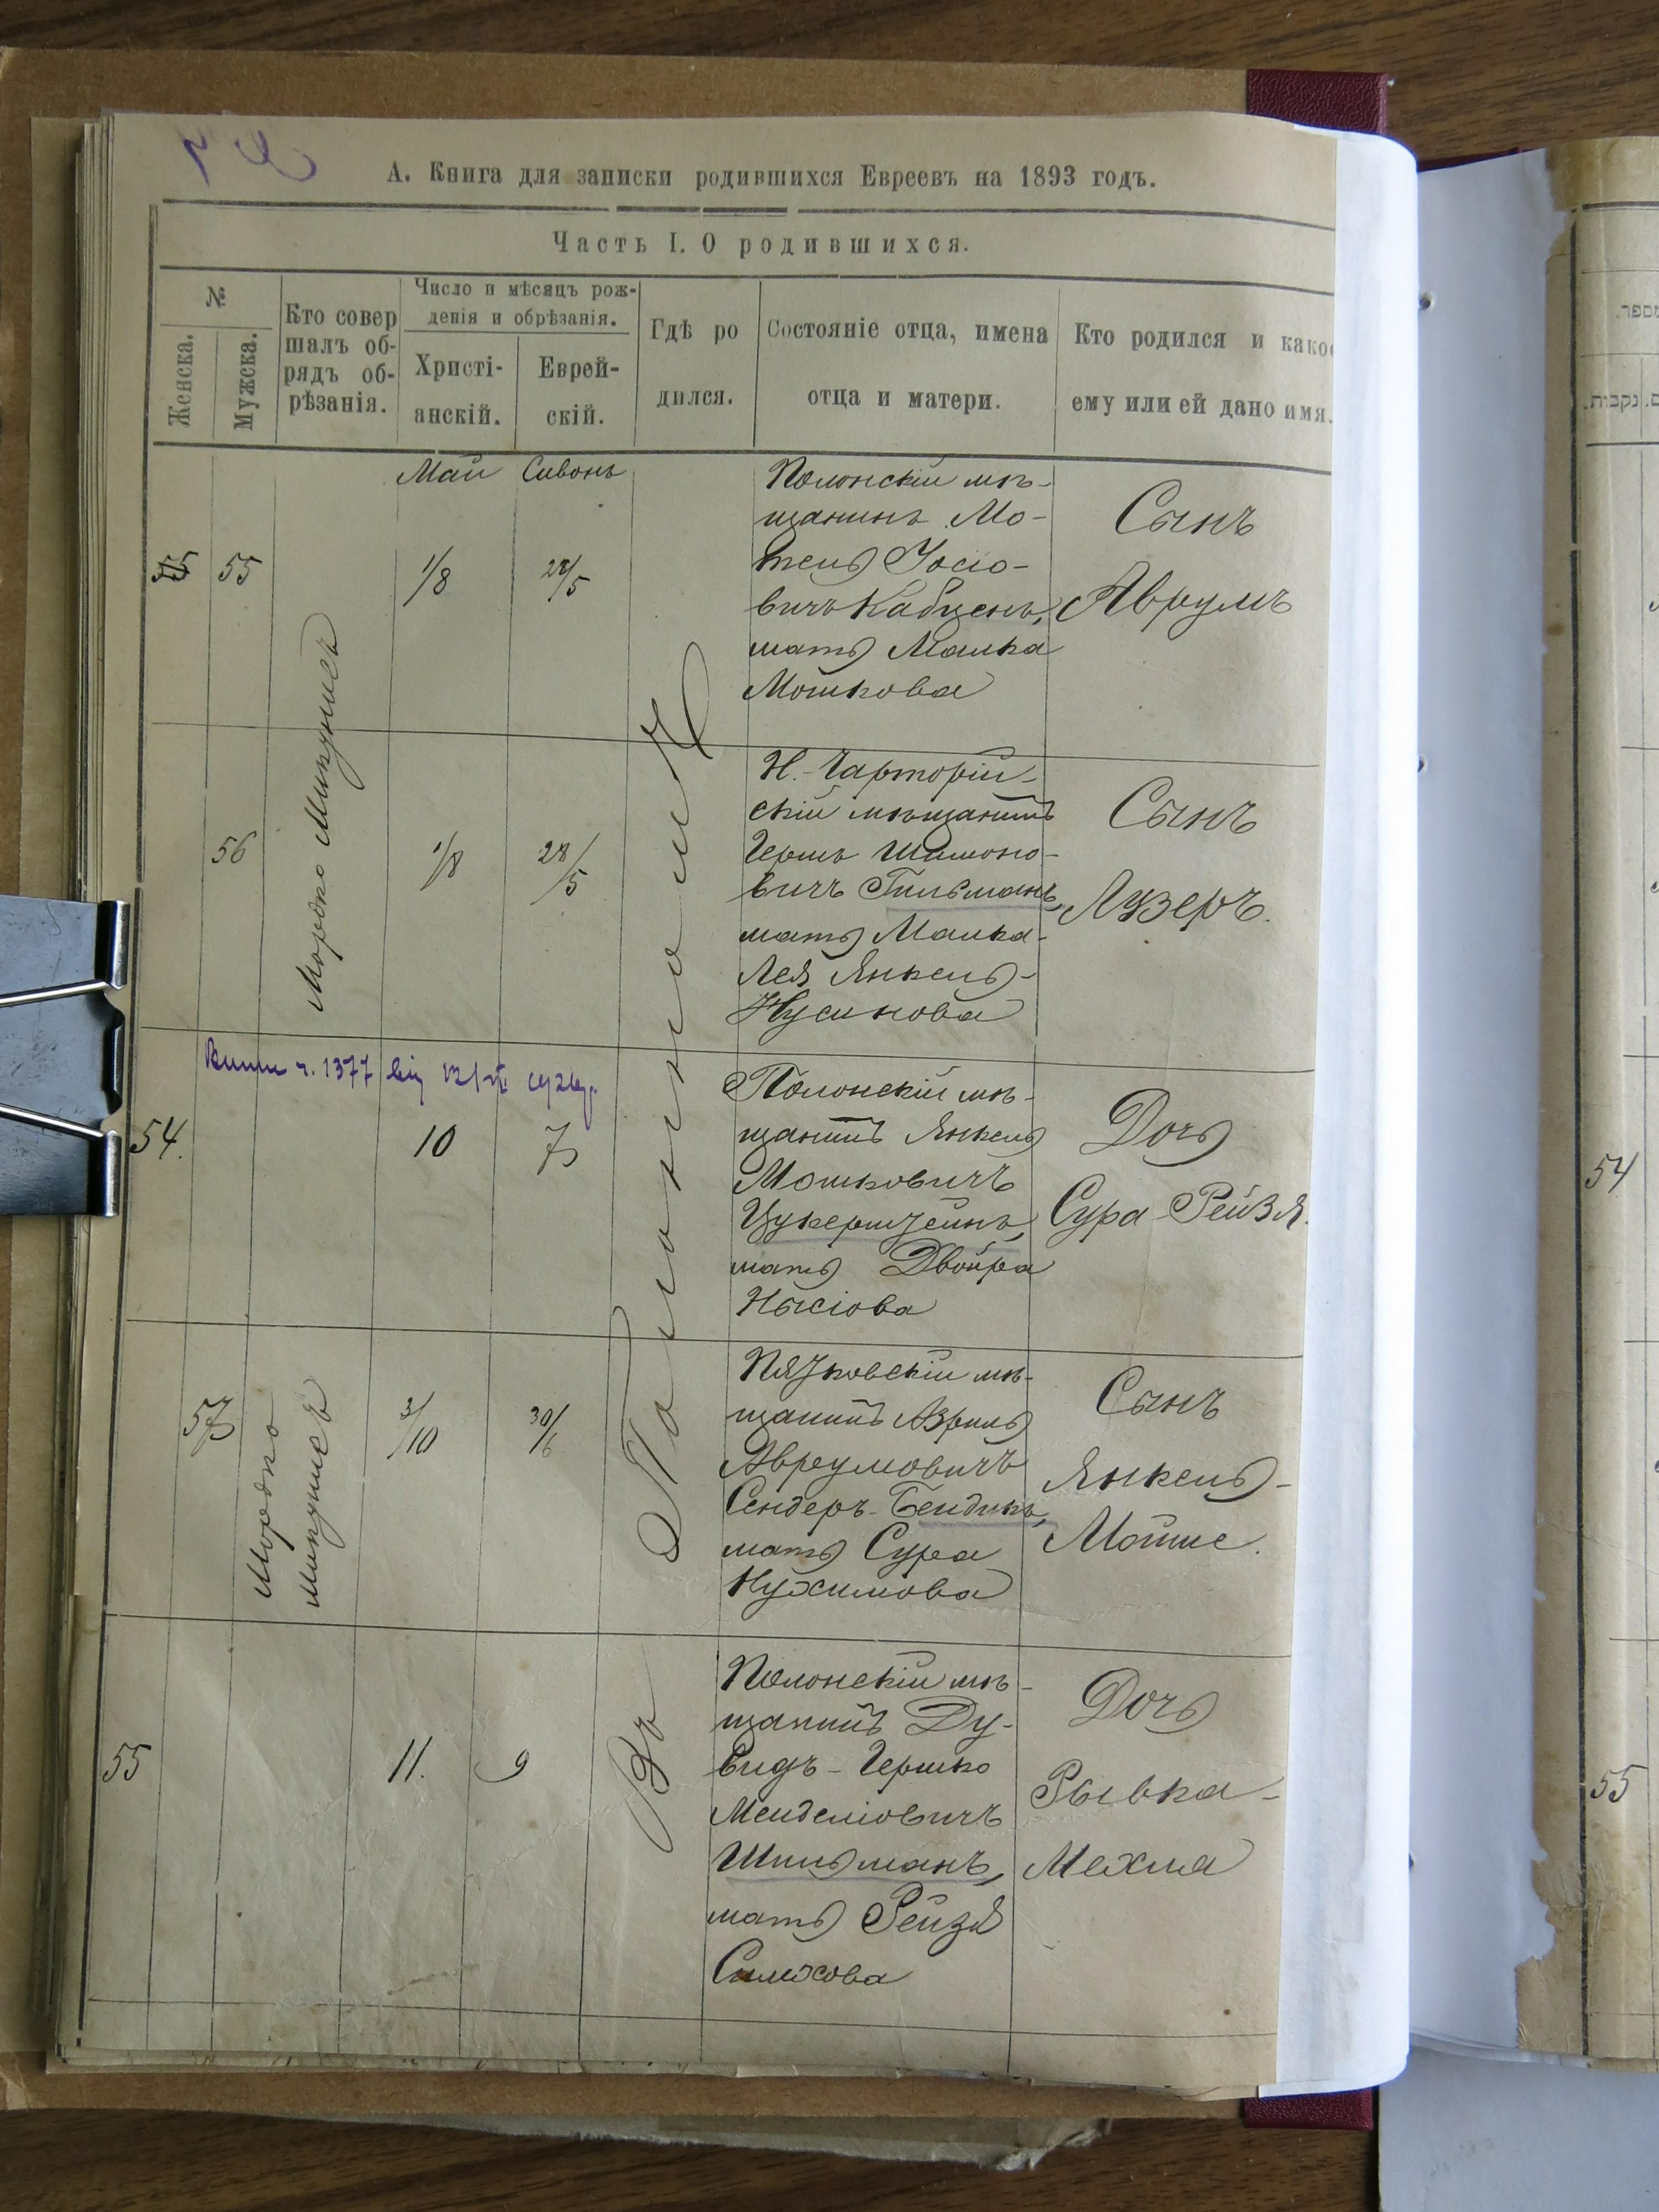 А. Книга для записки родившихся Евреевъ на 1893 годъ.
Часть I. О родившихся.
№
Женска.
Мужска.
Кто совер
шалъ об-
рядъ об-
рѣзанія.
Число и мѣсяцъ рож-
денія и обрѣзанія.
Христі-
анскій.
Еврей-
скій.
Гдѣ ро
дился.
Состояніе отца, имена
отца и матери.
Кто родился и какое
ему или ей дано имя.
Май Сивонъ
55 55
1/8
28/5
Полонскій мѣ-
щанинъ Мо-
тель Іосіо-
вичъ Кабценъ,
мать Малка
Мошкова
Сынъ
Аврумъ
Мордко Микунисъ
56
1/8
28/5
Н.-Чарторій-
скій мѣщанинъ
Гершъ Шимоно-
вичъ Гильманъ,
мать Малка-
Лея Янкель-
Нусинова
Сынъ
Лузеръ.
ч. 1377 від
54.
10
7
Полонскій мѣ-
щанинъ Янкель
Мошковичъ
Цукерштейнъ,
мать Двойра
Нысіова
Дочь
Сура-Рейзя.
57
Мордко
Микунисъ
3/10
30/6
мѣ-
щанинъ Азриль
Аврумовичъ
Сендеръ-Бендикъ,
мать Сура
Нухимова
Сынъ
Янкель-
Мойше.
55
11.
9
Полонскій мѣ-
щанинъ Ду-
видъ-Гершко
Менделіовичъ
Шпильманъ,
мать Рейзя
Симхова
Дочь
Рывка-
Мехля
Въ Полонномъ
מספר.
נקבות.
54
55